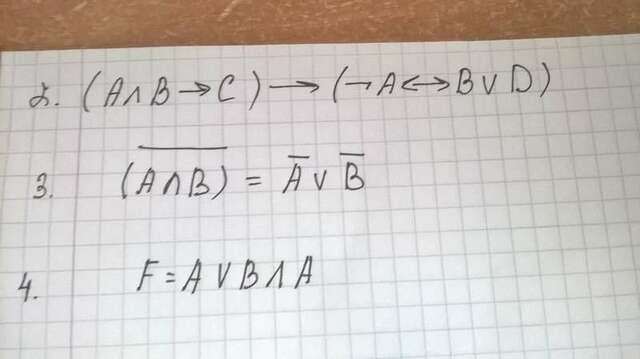 2. (A∧B→C)→(¬A↔B∨D)
3. (A̅∧̅B̅) = A̅∨B̅
4. F=A∨B∧A